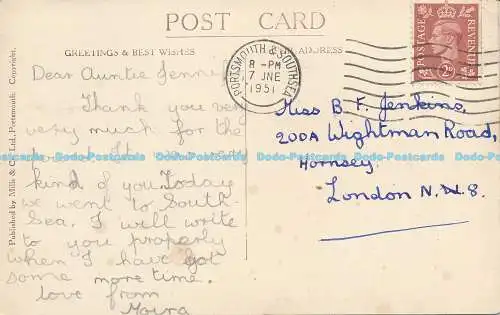 POST CARD
GREETINGS & BEST WISHES
ADDRESS
Published by Mills & Ltd., Portsmouth. Copyright.
PORTSMOUTH & SOUTHSEA
8 - PM
7 JNE
1951
POSTAGE REVENUE
2D
Dear Auntie Jennie
Thank you very
very much for the
It was very
kind of you. Today
we went to South-
Sea. I will write
to you properly
when I have got
some more time.
love from
Moira
Miss B. F. Jenkins,
200A Wightman Road,
Hornsey
London N. 8.
Dodo-Postcards Dodo-Postcards Dodo-Postcards Dodo-Postcards Dodo-Postcards Dodo-Postcards